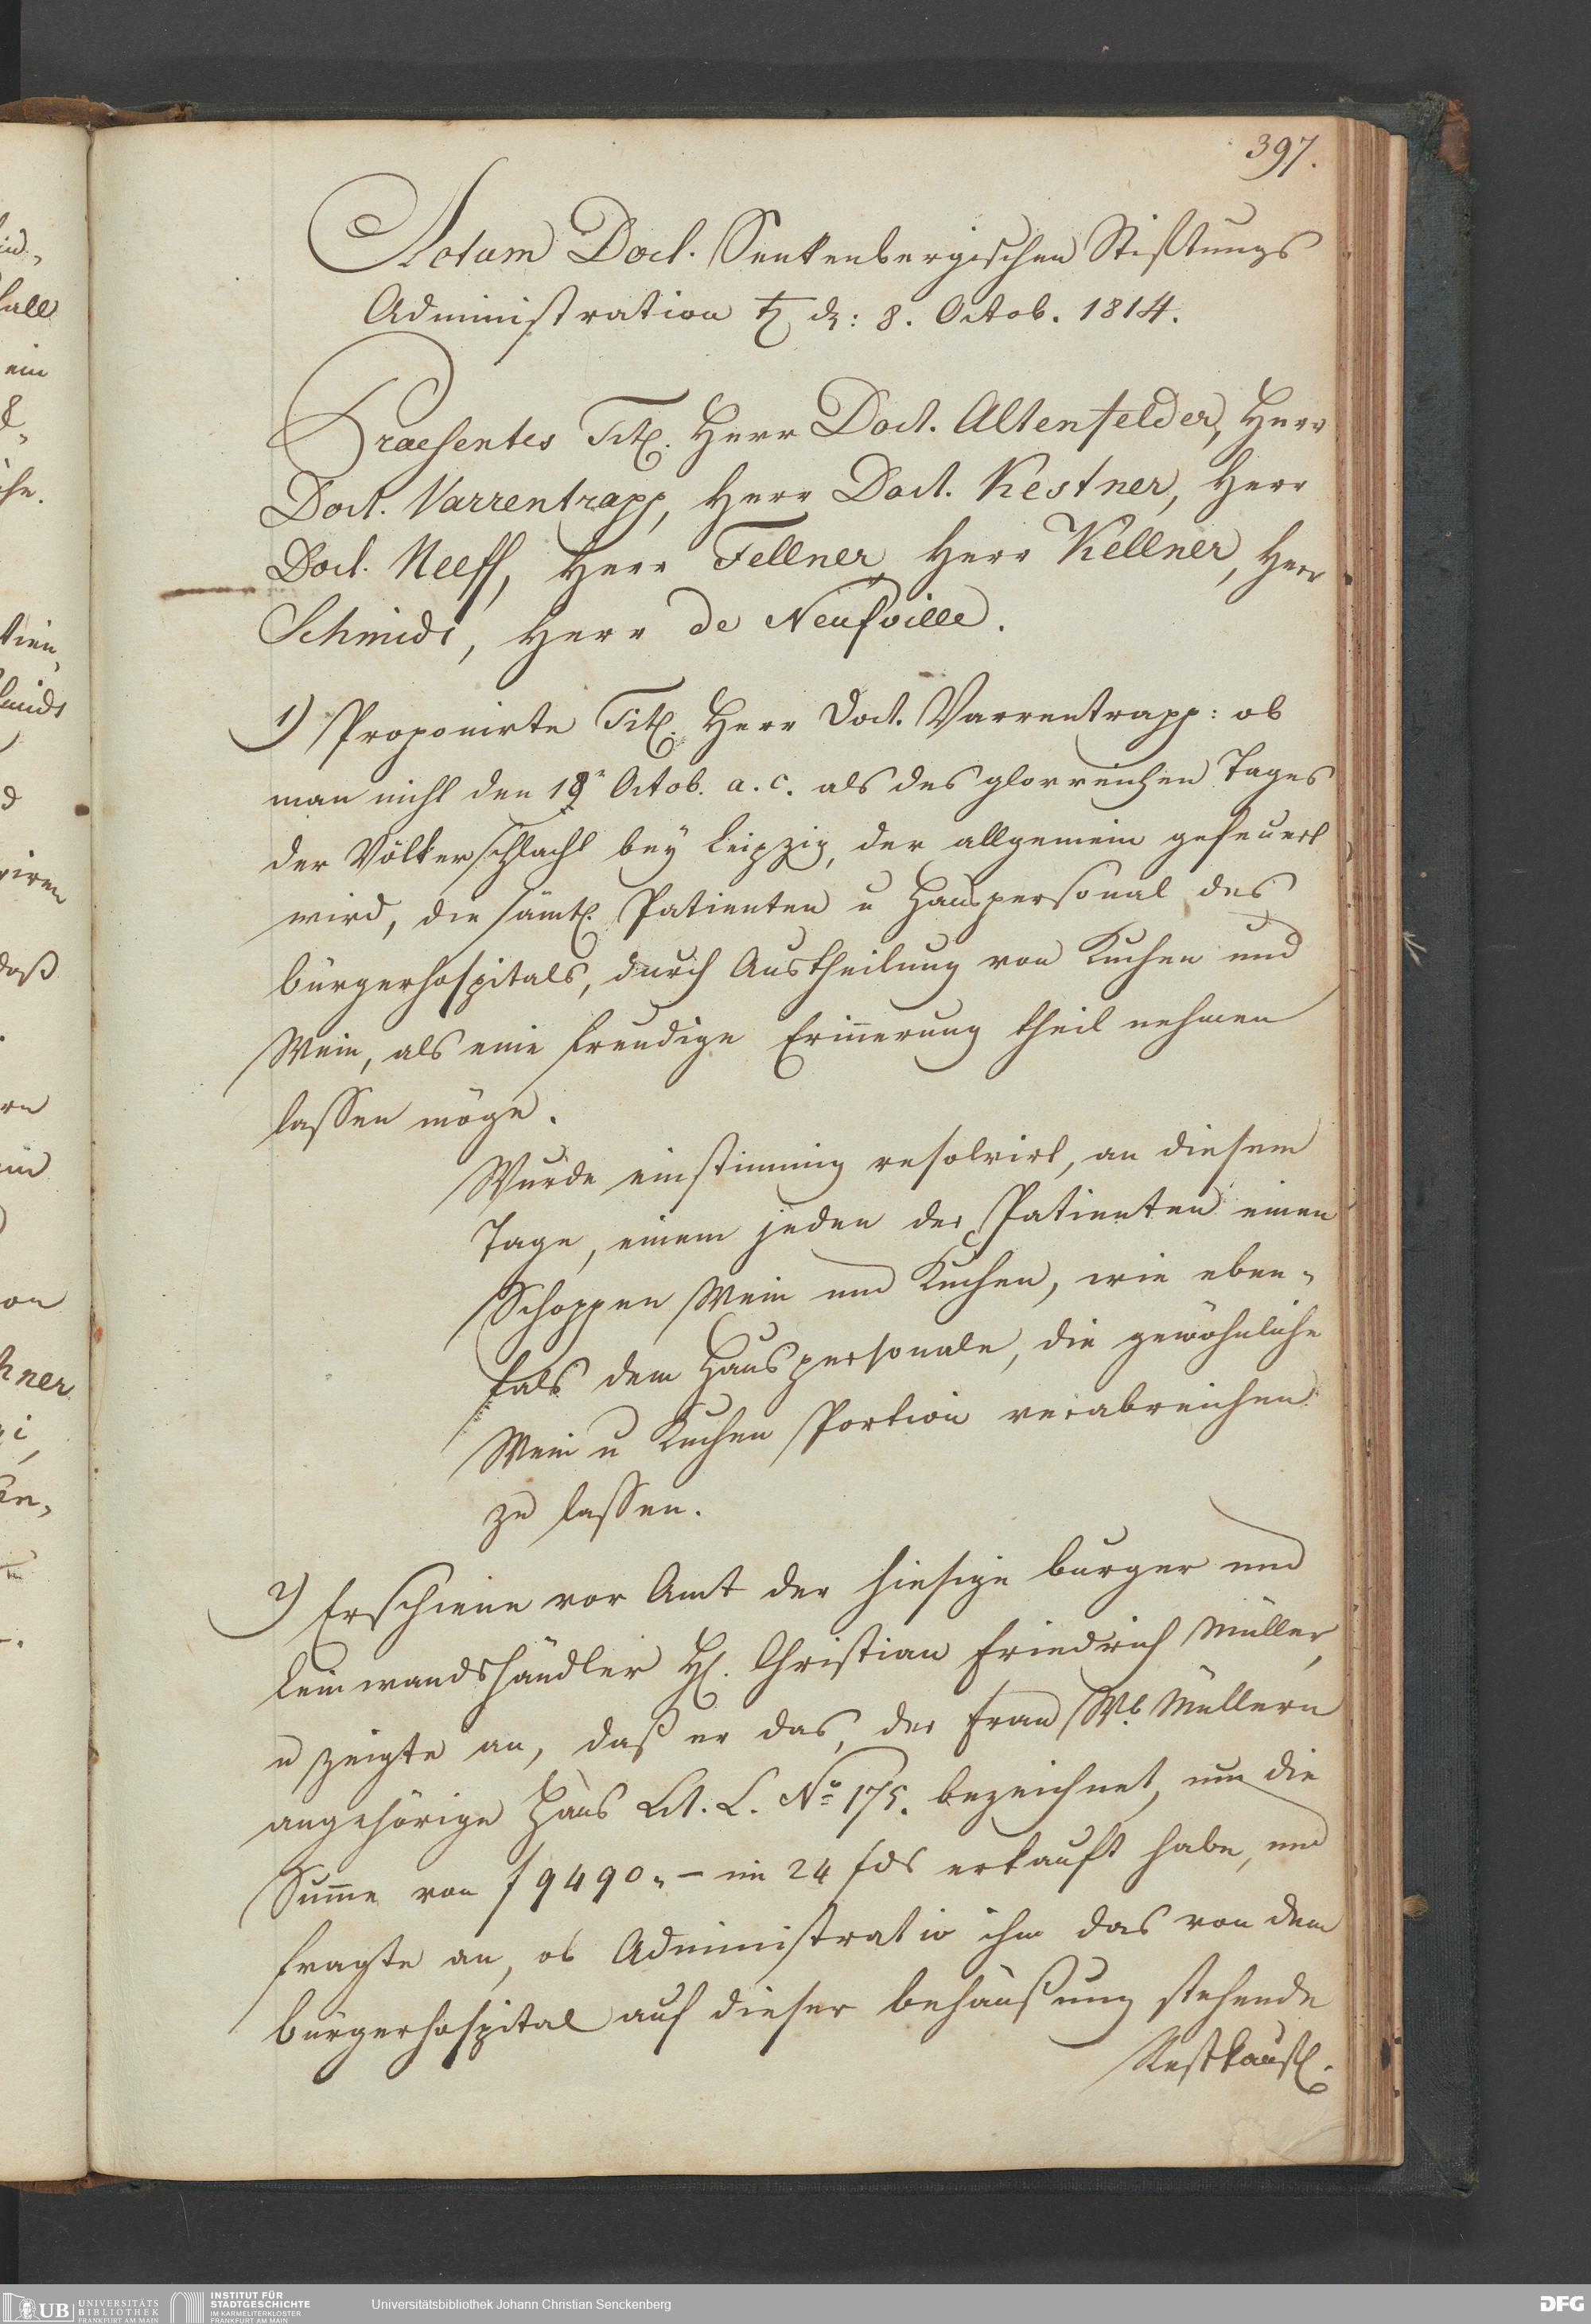 397.
Actum Doct. Senkenbergischen Stiftungs
Administration ♄ d: 8. Octob. 1814.
Praesentes Tit. Herr Doct. Altenfelder, Herr
Doct. Varrentrapp, Herr Doct. Kestner, Herr
Doct. Neeff, Herr Fellner, Herr Kellner, Herr
Schmidt, Herr de Neufville.
1) Proponirte Tit. Herr Doct. Varrentrapp: ob
man nicht den 18 Octob. a. c. als des glorreichen Tages
der Völkerschlacht bey Leipzig, der allgemein gefeuert
wird, die sämtl. Patienten u Hauspersonal des
bürgerhospitals, durch Austheilung von Kuchen und
Wein, als eine freudige Erinnerung theil nehmen
lassen möge.
Wurde einstimmig resolvirt, an diesem
Tage, einem jeden der Patienten einen
Schoppen Wein und Kuchen, wie eben„
fals dem Hauspersonale, die gewöhnliche
Wein u Kuchen Portion verabreichen
zu lassen.
2) Erschiene vor Amt der hiesige burger und
Leinwandshändler H. Christian Friedrich Müller,
u zeigte an, daß er das, der Frau Wb. Müllern
angehörige Haus Lit. L. No 175. bezeichnet, um die
Summe von f 9490„ – im 24 fds erkauft habe, und
fragte an, ob Administratio ihm das von dem
bürgerhospital auf dieser behaußung stehende
Restkaufl.
all
ein
daß
on
hner
UB UNIVERSITÄTS
BIBLIOTHEK
FRANKFURT AM MAIN
INSTITUT FÜR
STADTGESCHICHTE
IM KARMELITERKLOSTER
FRANKFURT AM MAIN
Universitätsbibliothek Johann Christian Senckenberg
DFG